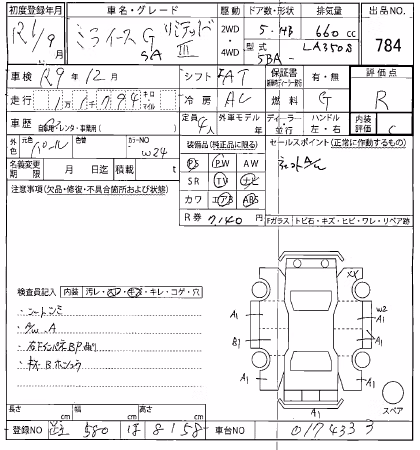 初度登録年月 車名・グレード 駆動 ドア数・形状 排気量 出品NO
R1/9月 ミライース G リミテッド SAⅢ 2WD・4WD 5・HB 660cc 784
型式 5BA- LA350S
車検 R9年12月 シフト FAT 保証書 有・無 評価点
走行 1万1千794 キロ マイル 冷房 AC 燃料 G R
車歴 自家用・レンタ・事業用( ) 定員 4人 外車モデル 年 ディーラー・並行 ハンドル 左・右 内装評価 C
外色 元色 パール 色替 カラーNO W24
装備品(純正品に限る) セールスポイント(正常に作動するもの)
名義変更期限 月 日迄 積載 t
PS PW AW
SR TV ナビ
カワ エアB ABS
R券 7,140円
注意事項(欠品・修復・不具合箇所および状態)
Fガラス トビ石・キズ・ヒビ・ワレ・リペア跡
検査員記入 内装 汚レ・スレ・キズ・キレ・コゲ・穴
・シートシミ
・A/W.A
XX
A1
B1
A1
W2
A1
A1
A1
A1
スペア
長さ cm 幅 cm 高さ cm
登録NO 580 ほ 8158 車台NO 0174333